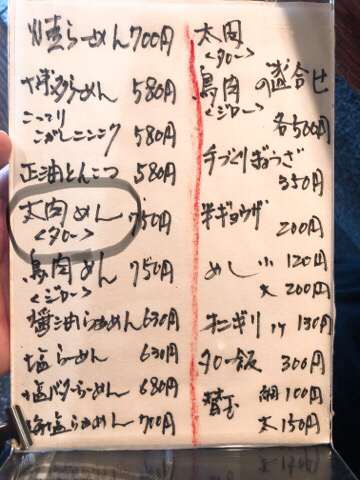 らーめん 700円
博多らーめん 580円
こってり
こがしニンニク 580円
正油とんこつ 580円
太肉めん 750円
<タロー>
鳥肉めん 750円
<ジロー>
醤油らぁめん 630円
塩らーめん 630円
塩バターらーめん 680円
塩らぁめん 700円
太肉
<タロー>
鳥肉 の盛合せ
<ジロー>
各500円
手づくりぎょうざ
350円
半ギョウザ
200円
めし 小 120円
大 200円
オニギリ 130円
タロー飯 300円
替玉 細 100円
太 150円